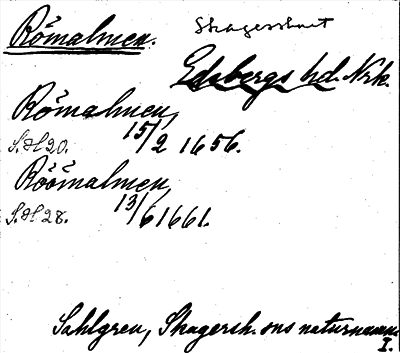 Römalmen. Skagershult
Edsbergs hd. Nrk.
Römalmen,
S.H 20. 15/2 1656.
Röömalmen,
S.H 28. 13/6 1661.
Sahlgren, Skagersh. sns naturnamn
I.